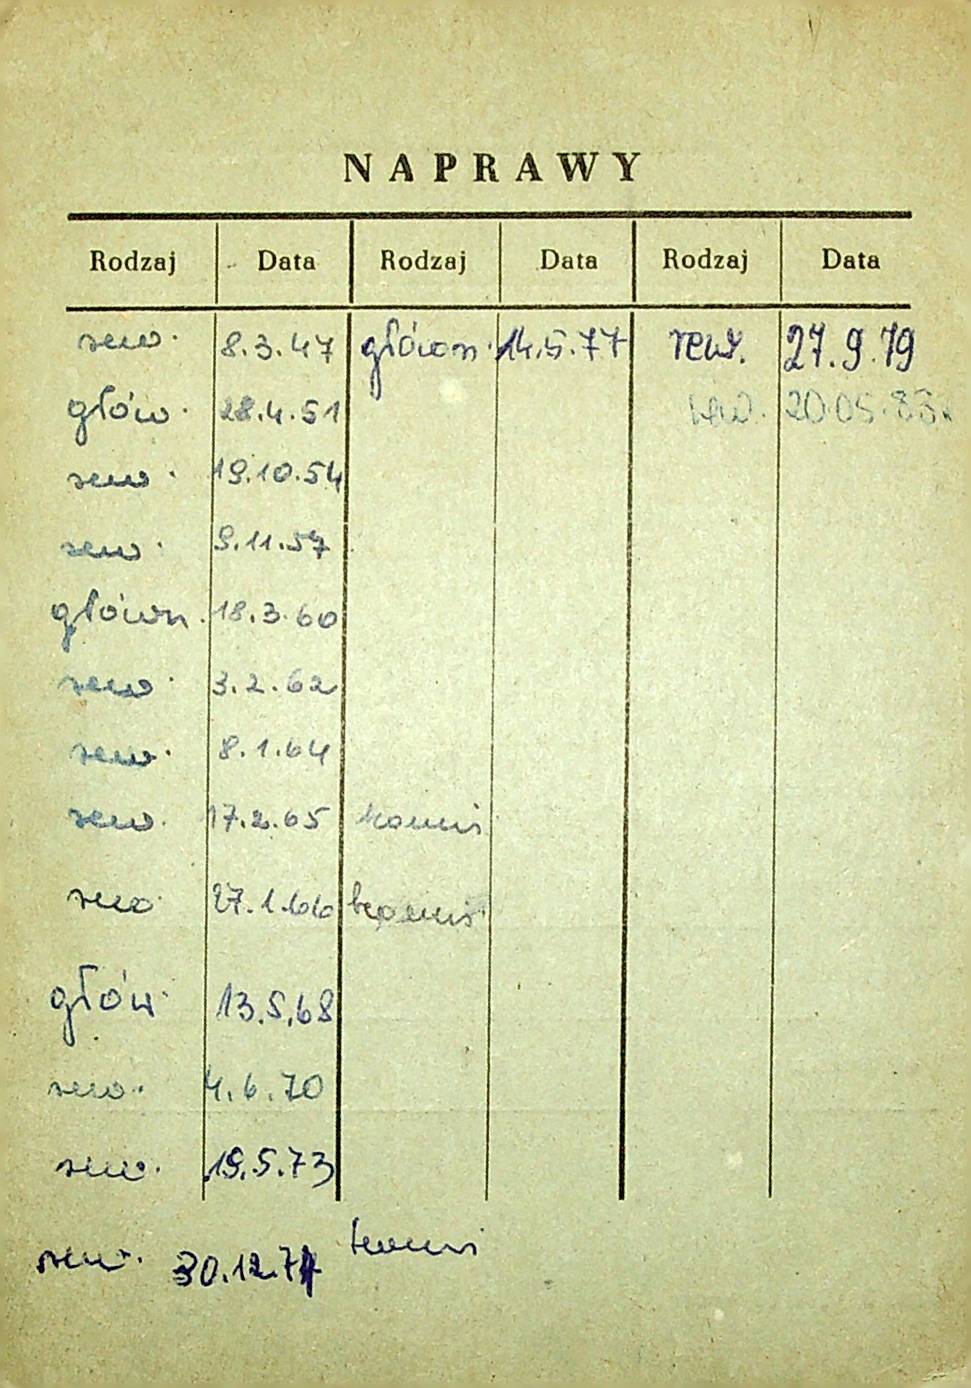 NAPRAWY
Rodzaj Data Rodzaj Data Rodzaj Data
rew. 8.3.47 główn. 14.5.77 rew. 27.9.79
głów. 28.4.51 rew. 20.05.83
rew. 19.10.54
rew. 9.11.57
główn. 18.3.60
rew. 3.2.62
rew. 8.1.64
rew. 17.2.65 komis
rew. 27.1.66 komis
głów. 13.5.68
rew. 4.6.70
rew. 19.5.73
rew. 30.12.74 komis